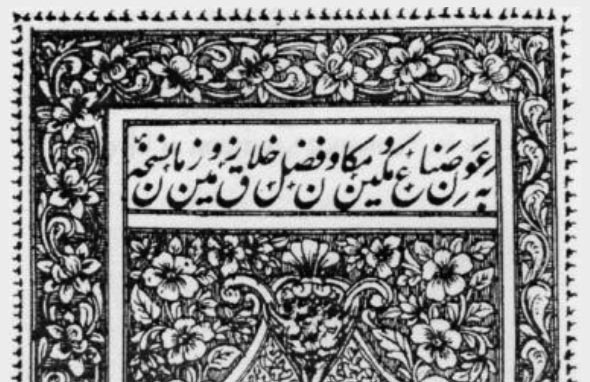 بِه عَونِ صَناع مکین و مکان و فضل خلاق زمین و زمان نسخهٔ